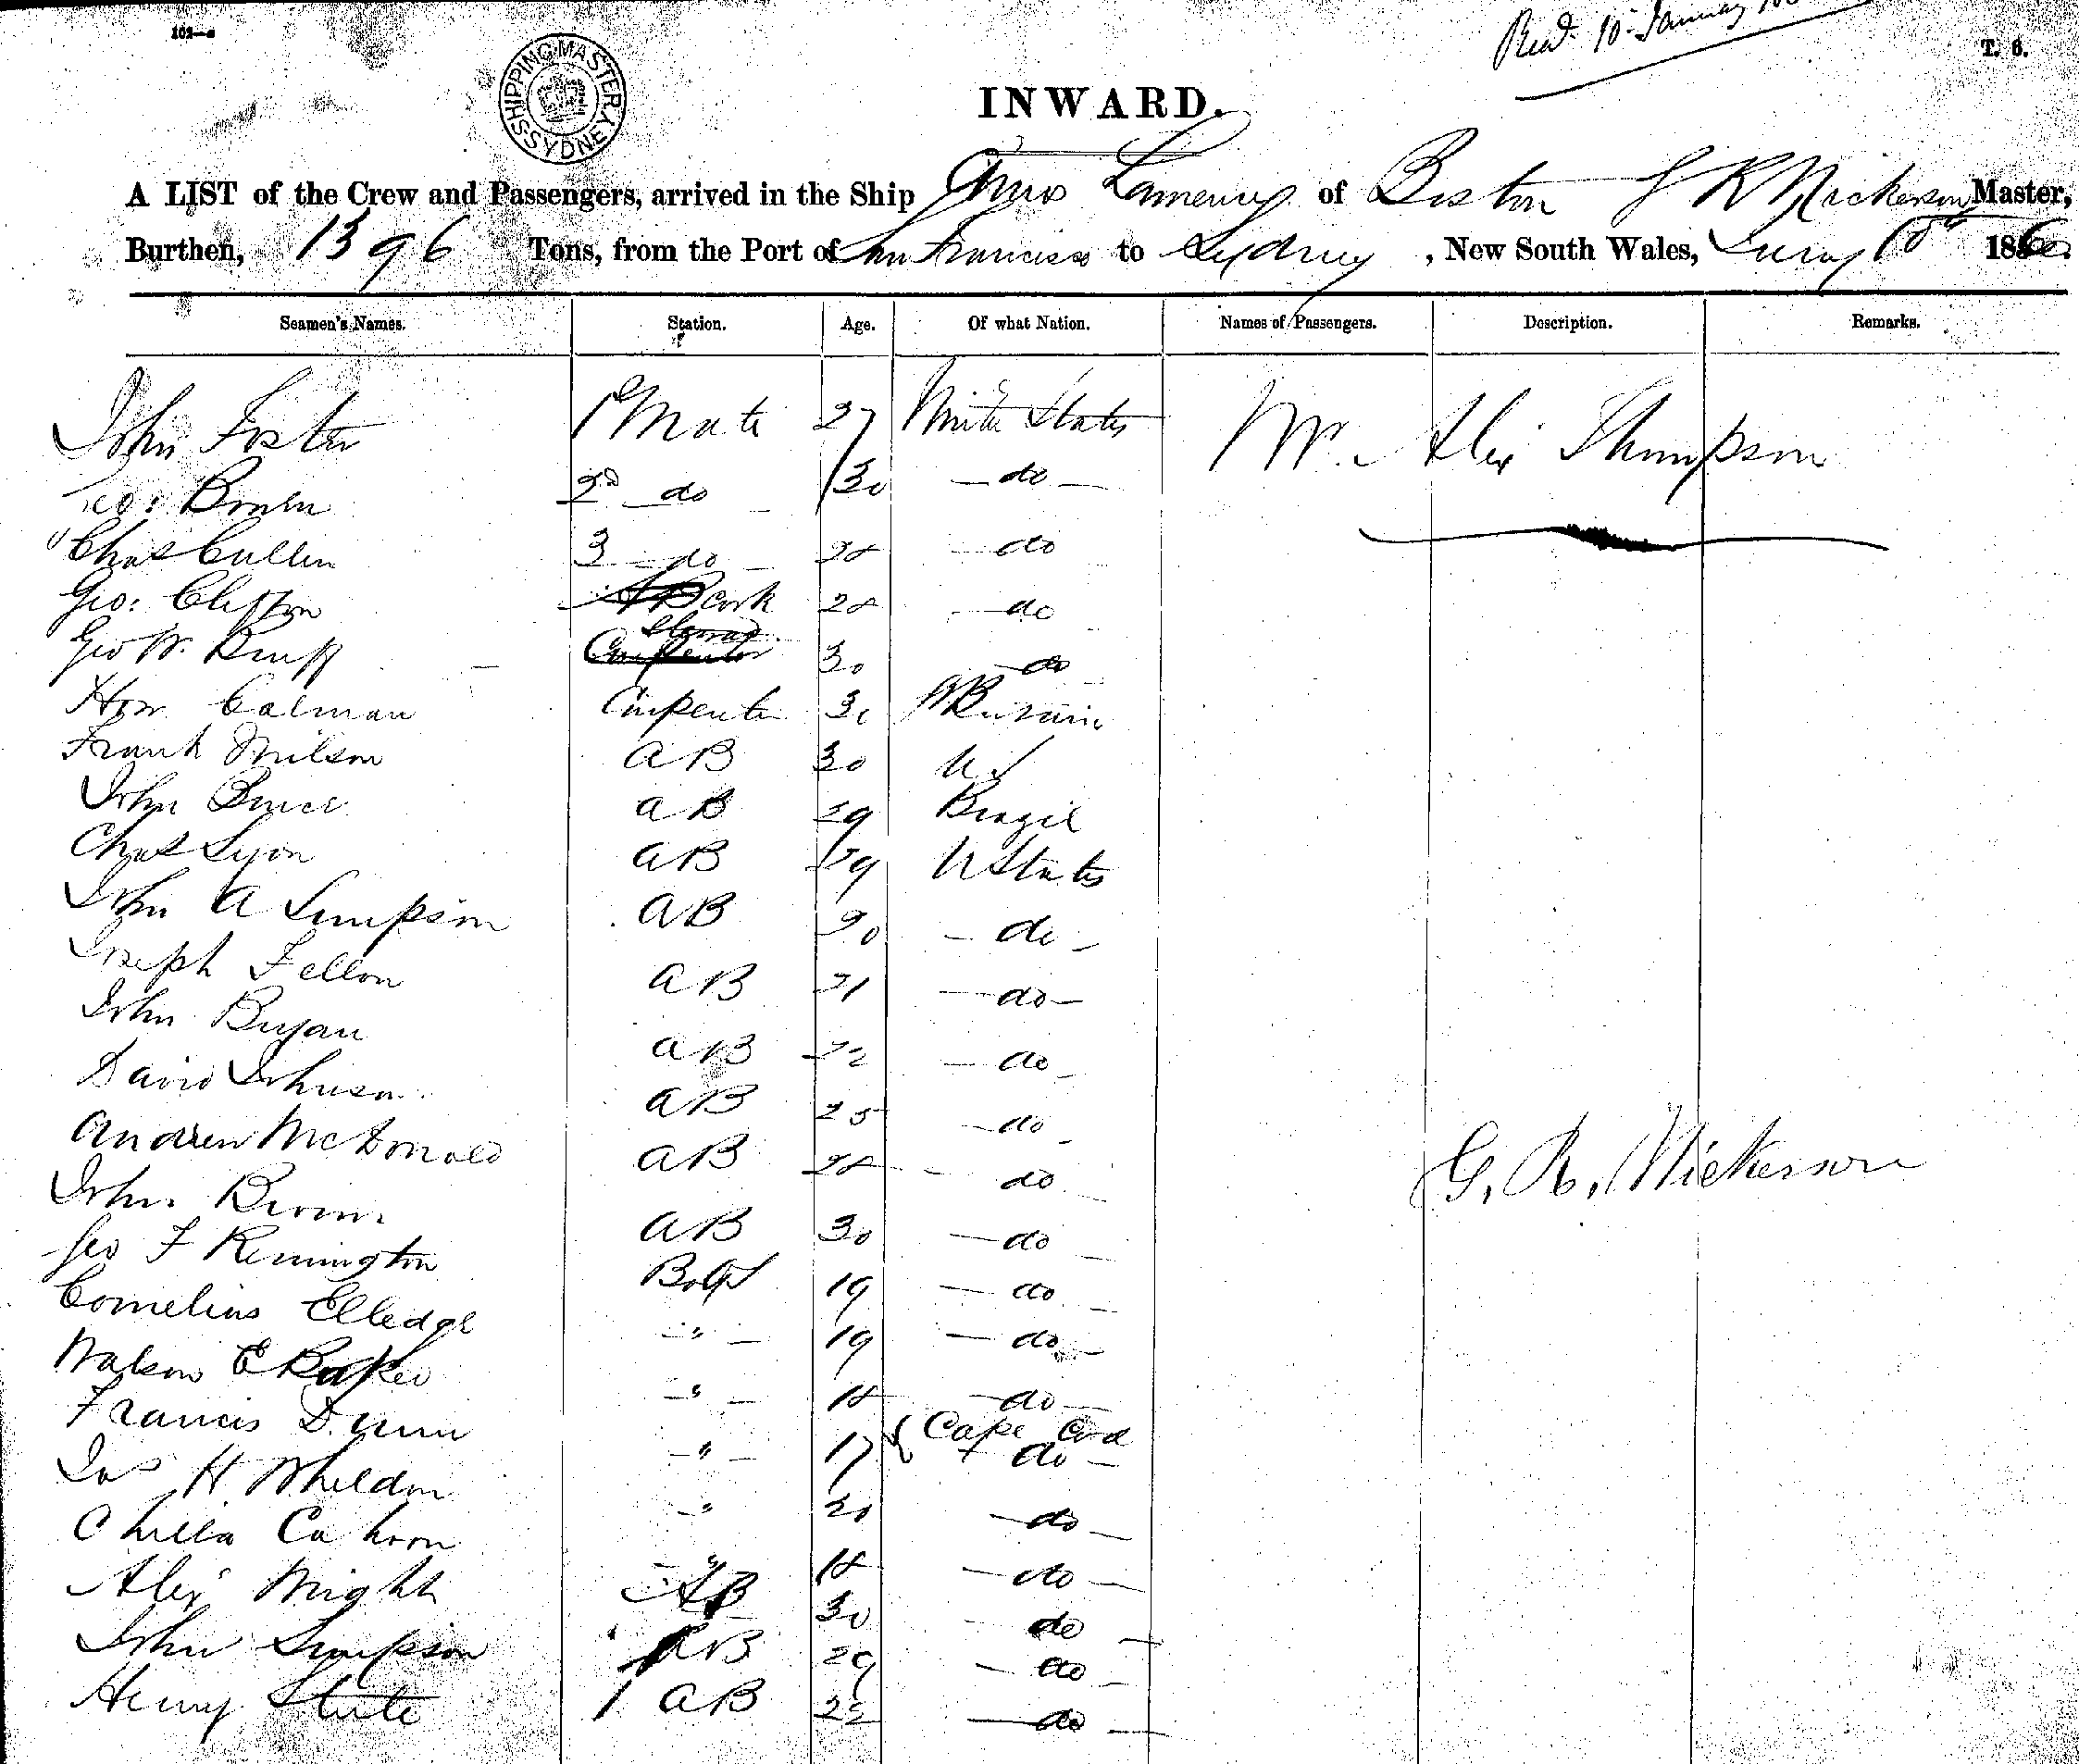 SHIPPING MASTER SYDNEY
10 January
T. 6.
INWARD.
A LIST of the Crew and Passengers, arrived in the Ship of Boston G R Nickerson Master,
Burthen, 1396 Tons, from the Port of San Francisco to Sydney, New South Wales, 10th 186
Seamen's Names. Station. Age. Of what Nation. Names of Passengers. Description. Remarks.
John Foster 1st Mate 27 United States Mr. Alex Thompson
Geo: 2nd do 30 do
Chas Cullen 3 do 28 do
Geo: Clifton Cook 28 do
Geo W. Steward 30 do
Calman Carpenter
Frank Wilson AB 30 US
John AB 29 Brazil
Chas Lyon AB U States
John A Simpson AB do
Joseph Fellon AB 21 do
John AB 22 do
David Johnson AB 25 do
Andrew McDonald AB 28 do
John Brown AB 30 do
Geo F Remington Boy 19 do
Cornelius Elledge " 19 do
E Baker " 18 do
Francis Dunn " 17 Cape Cod do
Jas H Wheldon " 20 do
Cahoon " 18 do
Alex Wright AB 30 do
John Simpson AB 29 do
Henry AB 22 do
G. R. Nickerson